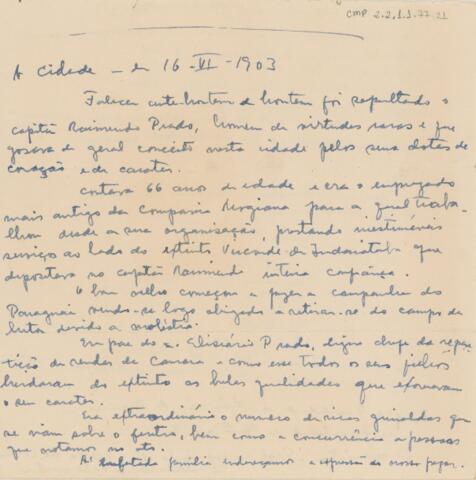 CMP 2.2.1.1.77.21
A Cidade — de 16-VI-1903
Faleceu ante-hontem e hontem foi sepultado o
capitão Raimundo Prado, homem de virtudes raras e que
gosava de geral conceito nesta cidade pelos seus dotes de
coração e de carater.
Contava 66 anos de idade e era o empregado
mais antigo da Companhia Mogiana para a qual traba-
lhou desde a sua organisação, prestando inestimáveis
serviços ao lado do extinto Visconde de Indaiatuba que
depositava no capitão Raimundo inteira confiança.
O bom velho começou a fazer a campanha do
Paraguai vendo-se logo obrigado a retirar-se do campo da
luta devido a molestia.
Era pae do sr. Elisiário Prado, digno chefe da repar-
tição de rendas da Camara e como esse todos os seus filhos
herdaram do extinto as belas qualidades que exornavam
o seu carater.
Era extraordinário o numero de ricas grinaldas que
se viam sobre o feretro, bem como a concurrência de pessoas
que notamos no ato.
A' enlutada familia endereçamos a expressão do nosso pezar.